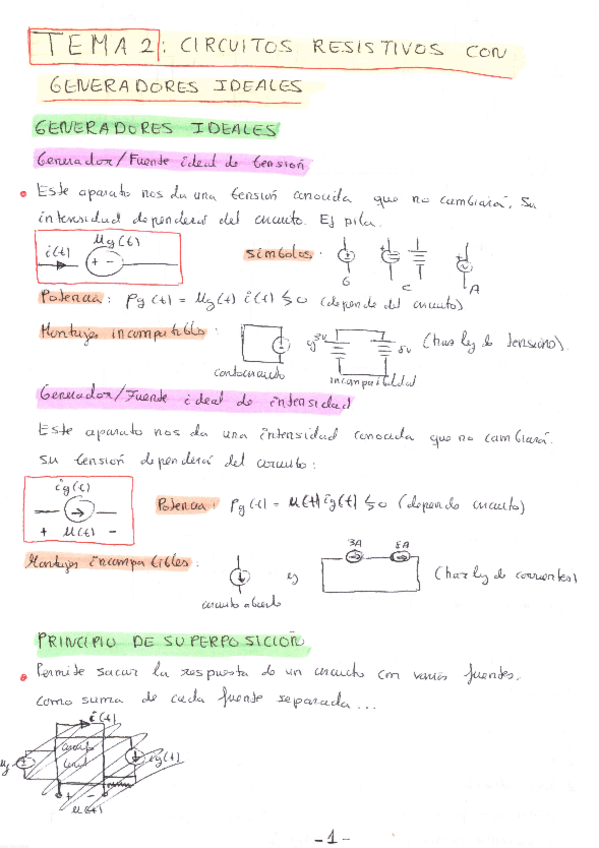 TEMA 2: CIRCUITOS RESISTIVOS CON
GENERADORES IDEALES
GENERADORES IDEALES
Generador/Fuente ideal de tensión
Este aparato nos da una tensión conocida que no cambiará. Su
intensidad dependerá del circuito. Ej pila.
i(t) ug(t)
+ -
símbolos:
G C A
Potencia: pg(t) = ug(t) i(t) ≶ 0 (depende del circuito)
Montajes incompatibles:
ej 3V 5V (haz ley de tensiones).
cortocircuito
incompatibilidad
Generador/Fuente ideal de intensidad
Este aparato nos da una intensidad conocida que no cambiará.
su tensión dependerá del circuito:
ig(t)
+ u(t) -
Potencia: pg(t) = u(t) ig(t) ≶ 0 (depende circuito)
Montajes incompatibles:
ej 3A 5A (haz ley de corrientes)
circuito abierto
PRINCIPIO DE SUPERPOSICIÓN
Permite sacar la respuesta de un circuito con varias fuentes.
como suma de cada fuente separada...
i(t)
ug
ig(t)
+ -
u(t)
-1-